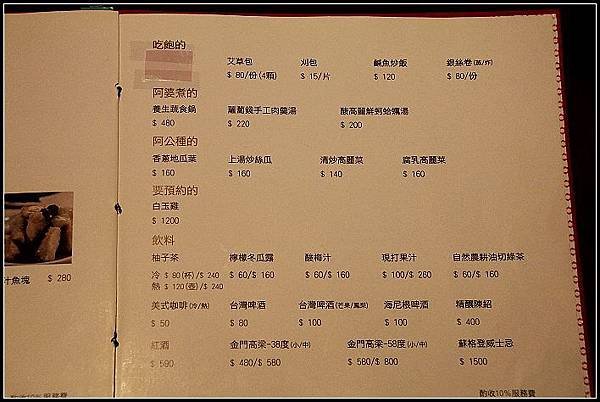 汁魚塊 $ 280
酌收10%服務費
吃飽的
艾草包 刈包 鹹魚炒飯 銀絲卷(蒸/炸)
$ 80/份(4顆) $ 15/片 $ 120 $ 80/份
阿婆煮的
養生蔬食鍋 蘿蔔錢手工肉羹湯 酸高麗鮮蚵蛤蠣湯
$ 480 $ 220 $ 200
阿公種的
香蔥地瓜葉 上湯炒絲瓜 清炒高麗菜 腐乳高麗菜
$ 160 $ 160 $ 140 $ 160
要預約的
白玉雞
$ 1200
飲料
柚子茶 檸檬冬瓜露 酸梅汁 現打果汁 自然農耕油切綠茶
冷 $ 80(杯)/$ 240 $ 60/$ 160 $ 60/$ 160 $ 100/$ 260 $ 60/$ 160
熱 $ 120(壺)/$ 240
美式咖啡(冷/熱) 台灣啤酒 台灣啤酒(芒果/鳳梨) 海尼根啤酒 精釀陳紹
$ 50 $ 80 $ 100 $ 100 $ 400
紅酒 金門高梁-38度(小/中) 金門高梁-58度(小/中) 蘇格登威士忌
$ 590 $ 480/$ 580 $ 580/$ 800 $ 1500
酌收10%服務費